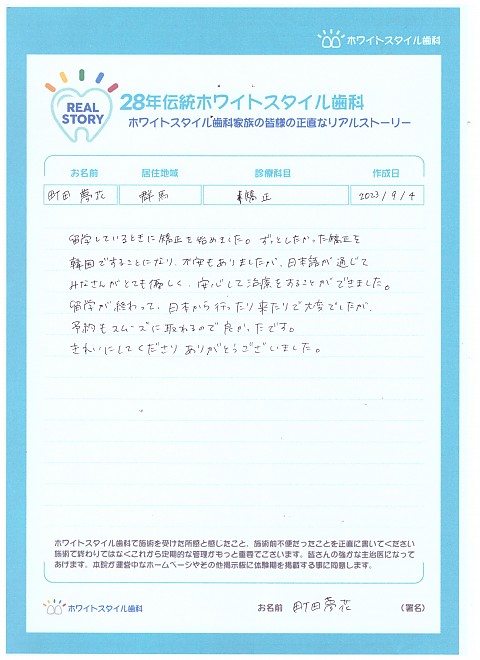 ホワイトスタイル歯科
REAL
STORY
28年伝統ホワイトスタイル歯科
ホワイトスタイル歯科家族の皆様の正直なリアルストーリー
お名前 居住地域 診療科目 作成日
町田 夢花 群馬 矯正 2023/9/4
留学しているときに矯正を始めました。ずっとしたかった矯正を
韓国ですることになり、不安もありましたが、日本語が通じて
みなさんがとても優しく、安心して治療をすることができました。
留学が終わって、日本から行ったり来たりで大変でしたが、
予約もスムーズに取れるので良かったです。
きれいにしてくださりありがとうございました。
ホワイトスタイル歯科で施術を受けた所感と感じたこと、施術前不便だったことを正直に書いてください
施術で終わりではなくこれから定期的な管理がもっと重要でございます。皆さんの強がな主治医になって
あげます。本院が運営中なホームページやその他掲示板に体験期を掲載する事に同意します。
ホワイトスタイル歯科 お名前 町田夢花 (署名)